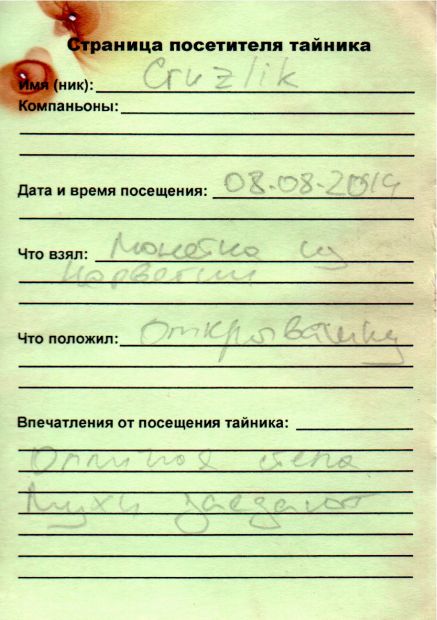 Страница посетителя тайника
Имя (ник): Cruzlik
Компаньоны:
Дата и время посещения: 08-08-2014
Что взял: Монетка из
Норвегии
Что положил: Открывашку
Впечатления от посещения тайника:
Отличная
Мухи заедают